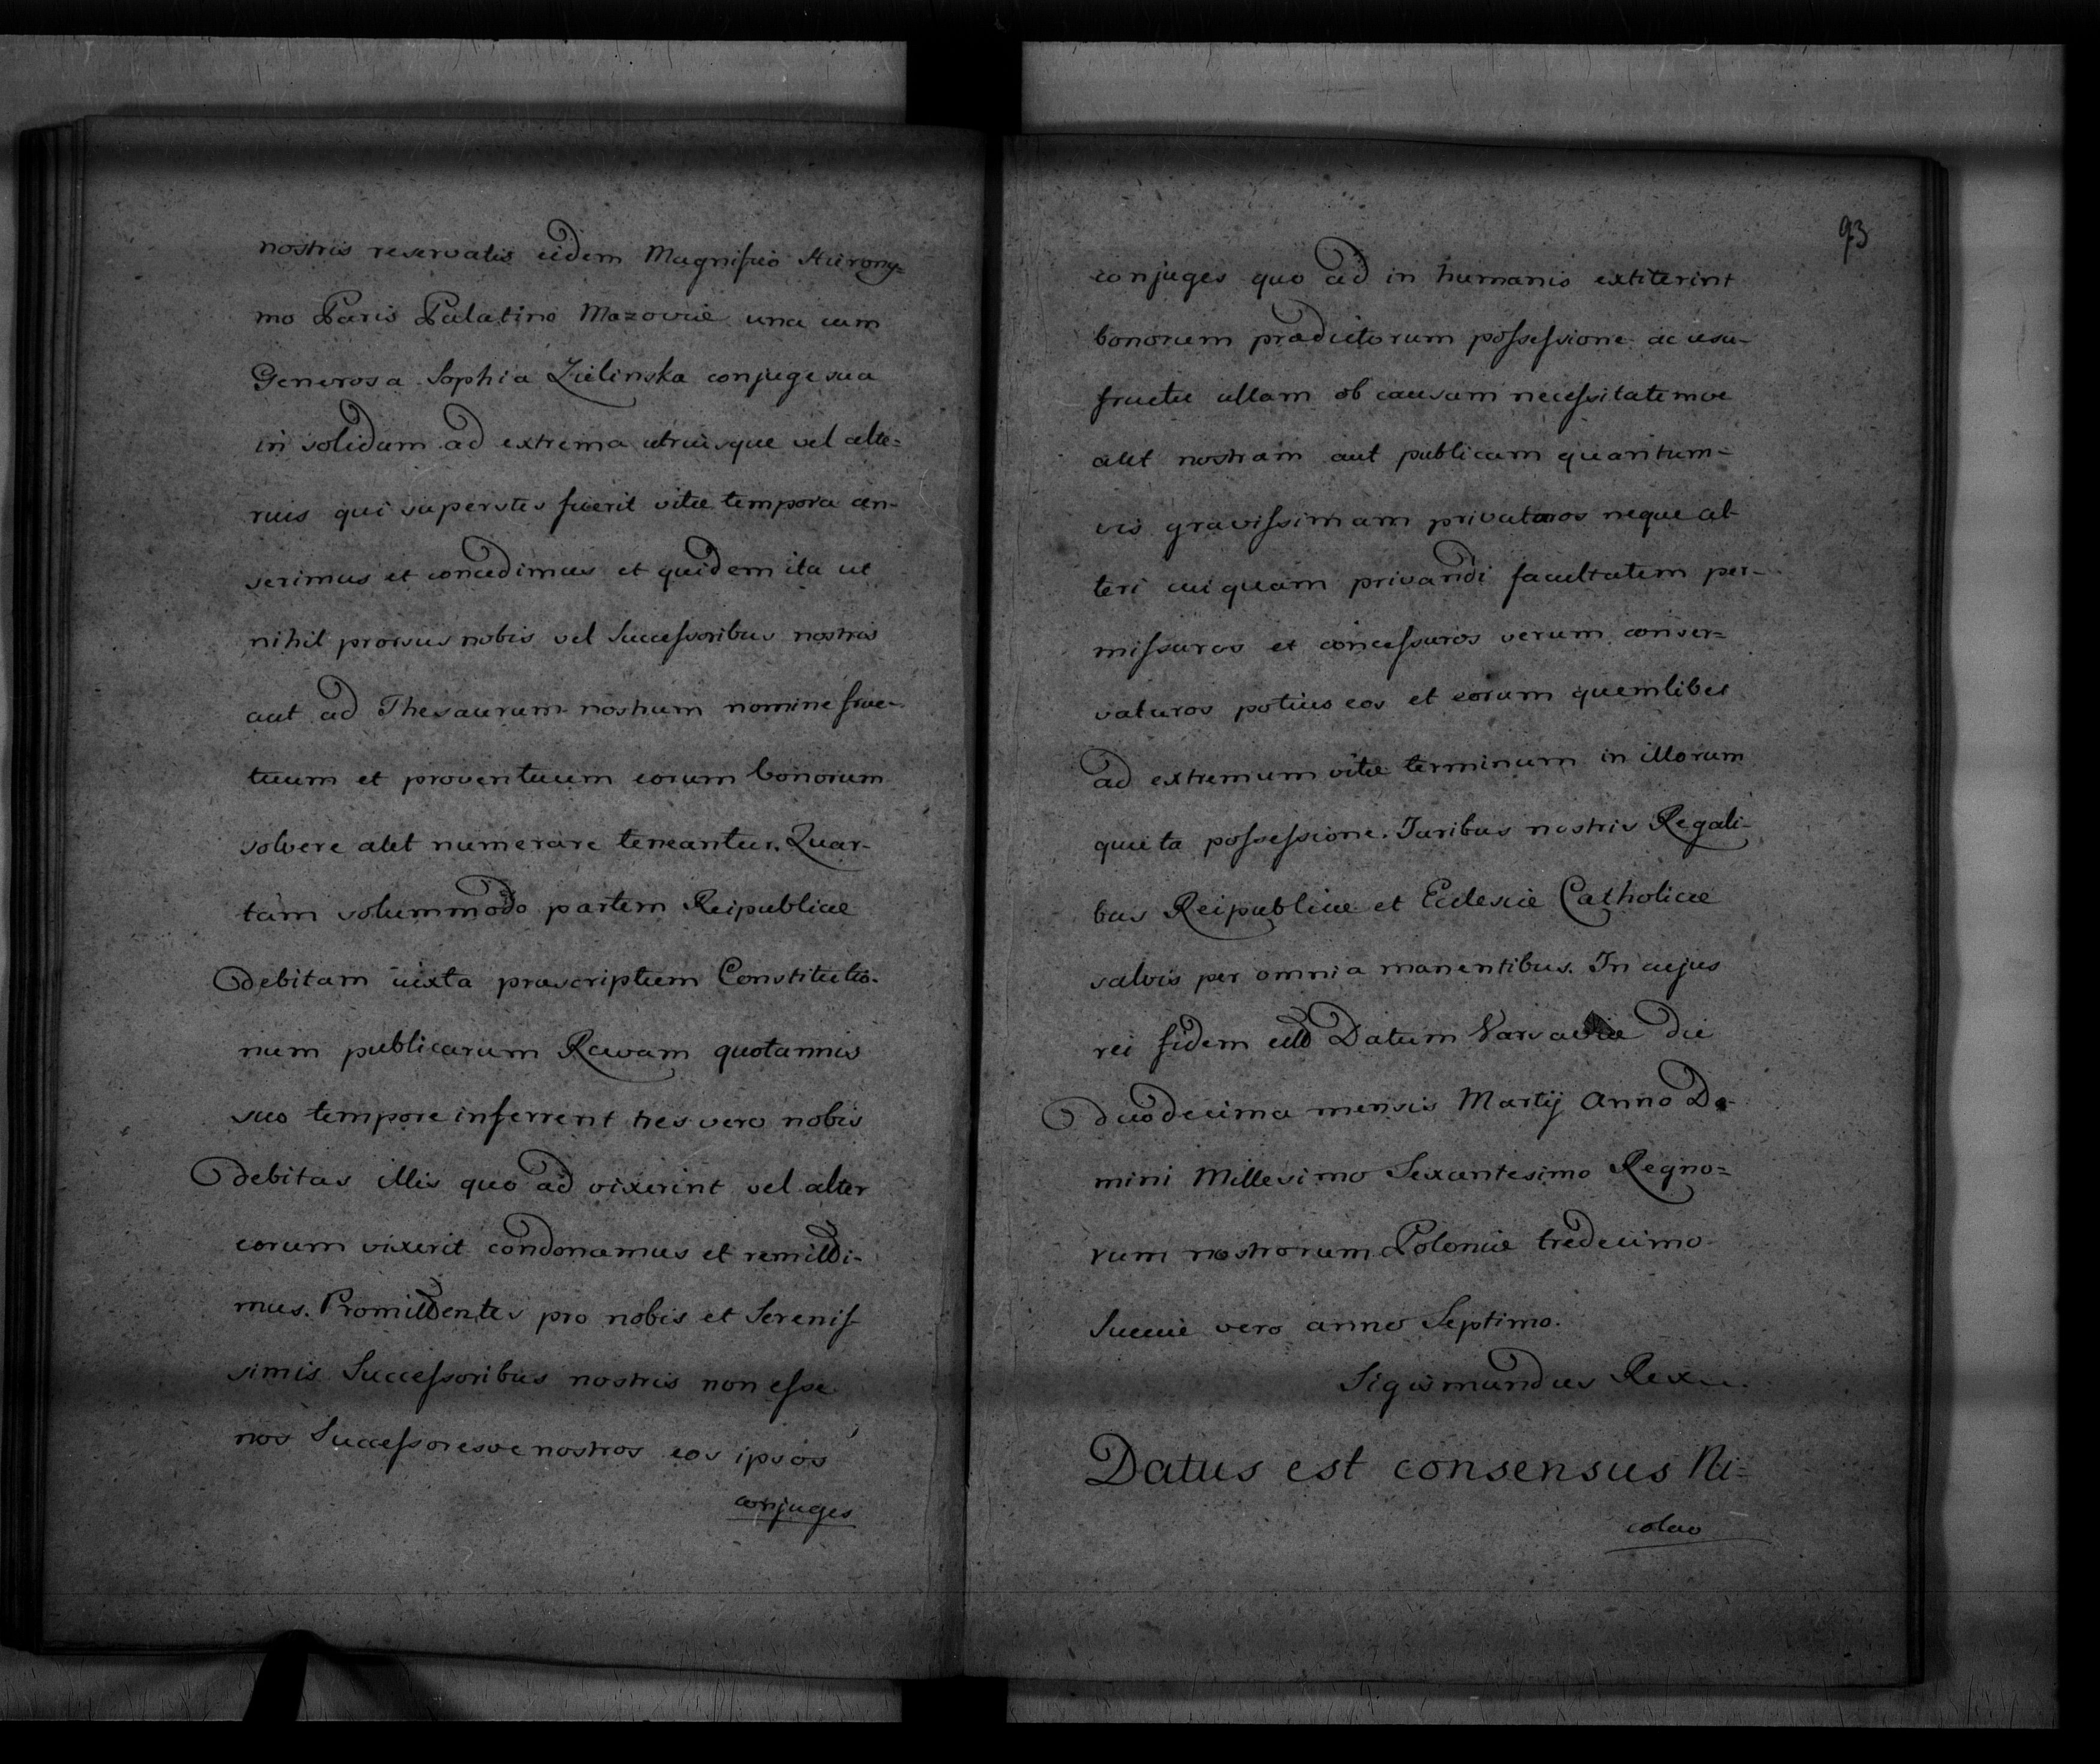 nostris reservatis eidem Magnifico Hierony=
mo Paris Palatino Mazoviæ una cum
Generosa Sophia Zielinska conjuge sua
in solidum ad extrema utriusque vel alte=
rius qui superstes fuerit vitæ tempora con-
serimus et concedimus et quidem ita ut
nihil prorsus nobis vel Successoribus nostris
aut ad Thesaurum nostrum nomine fruc-
tuum et proventuum eorum bonorum
solvere aut numerare teneantur. Quar-
tam solummodo partem Reipublicæ
debitam iuxta præscriptum Constitutio-
num publicarum Rawam quotannis
suo tempore inferrent tres vero nobis
debitas illis quo ad vixerint vel alter
eorum vixerit condonamus et remitti-
mus. Promittentes pro nobis et Serenis-
simis Successoribus nostris non esse
nos Successoresve nostros eos ipsos
conjuges
93
conjuges quo ad in humanis extiterint
bonorum prædictorum possessione ac usu-
fructu ullam ob causam necessitatemve
aut nostram aut publicam quantum=
vis gravissimam privaturos neque al-
teri cuiquam privandi facultatem per-
missuros et concessuros verum conser=
vaturos potius eos et eorum quemlibet
ad extremum vitæ terminum in illorum
quieta possessione. Juribus nostris Regali-
bus Reipublicæ et Eclesiæ Catholicæ
salvis per omnia manentibus. In cujus
rei fidem ett Datum Varsaviæ die
duodecima mensis Martij Anno Do-
mini Millesimo Sexcentesimo Regno=
rum nostrorum Poloniæ tredecimo
Sueciæ vero anno Septimo.
Sigismundus Rex
Datus est consensus Ni=
colao